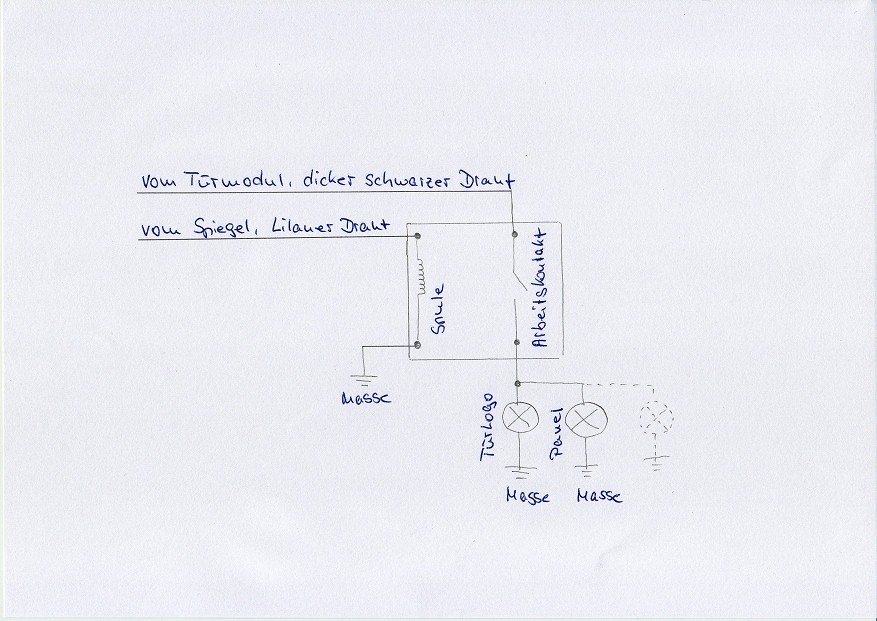 vom Türmodul, dicker schwarzer Draht
vom Spiegel, Lilaner Draht
Spule
Arbeitskontakt
Masse
TürLogo
Panel
Masse
Masse